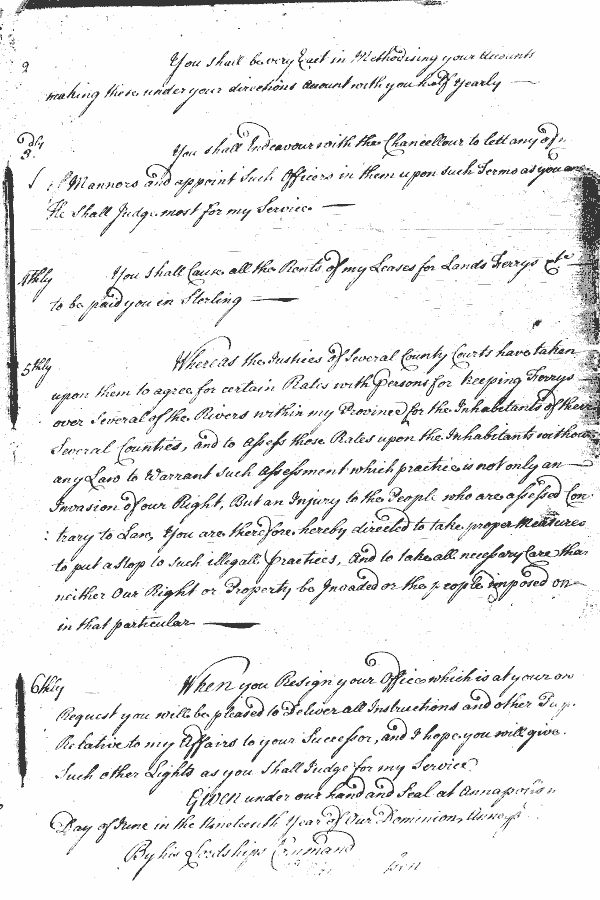 2 You shall be very Exact in Methodising your Accounts
making those under your directions account with you half Yearly
3dly You shall Endeavour with the Chancellour to lett any of
Mannors and appoint Such Officers in them upon such Terms as you and
He Shall Judge most for my Service
4thly You shall Cause all the Rents of my Leases for Lands Ferrys &tc
to be paid you in Sterling
5thly Whereas the Justices of Several County Courts have taken
upon them to agree for certain Rates with Persons for keeping Ferrys
over Several of the Rivers within my Province for the Inhabitants of their
Several Counties, and to assess those Rates upon the Inhabitants without
any Law to Warrant such assessment which practice is not only an
Invasion of our Right, But an Injury to the People who are assessed Con
: trary to Law, You are therefore hereby directed to take proper Measures
to put a stop to such illegall practices, And to take all necessary Care that
neither Our Right or Property be Invaded or the people imposed on
in that particular
6thly When you Resign your Office which is at your own
Request you will be pleased to Deliver all Instructions and other
Relative to my Affairs to your Successor, and I hope you will give
Such other Lights as you Shall Judge for my Service
Given under our hand and Seal at Annapolis
Day of June in the Nineteenth Year of Our Dominion,
By his Lordships Command